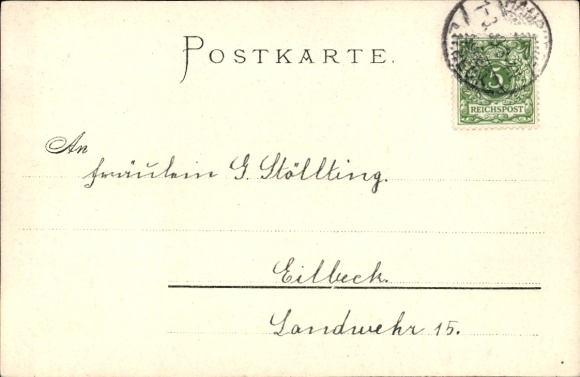 POSTKARTE.
5
REICHSPOST
An
Fräulein G. Stöllting.
Eilbeck.
Landwehr 15.